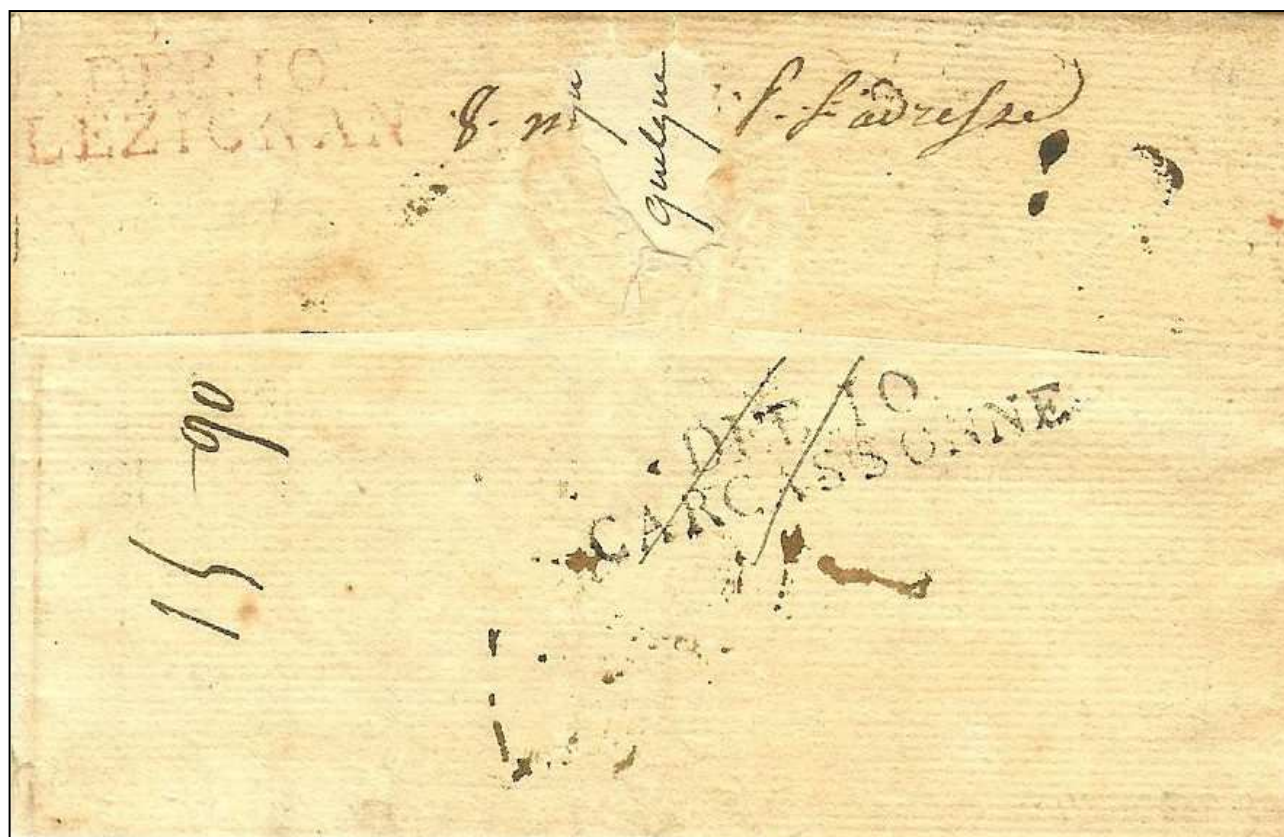 DEB. 10.
LEZIGNAN
quelque
l'adresse
15 90
DEB. 10.
CARCASSONNE